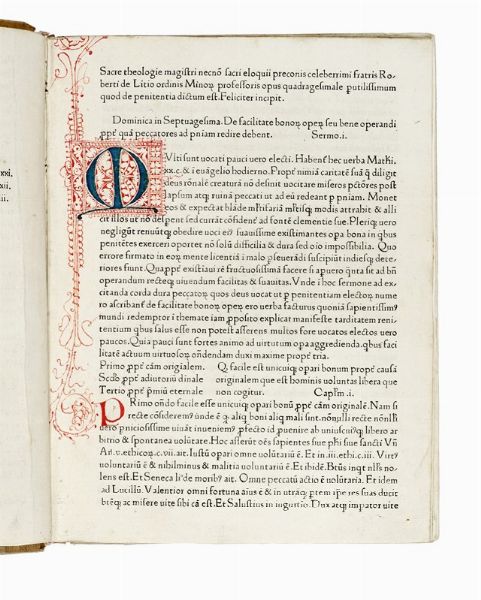 Sacre theologie magistri necnõ sacri eloquii preconis celeberrimi fratris Ro-
berti de Litio ordinis Minoꝝ professoris opus quadragesimale putilissimum
quod de penitentia dictum est. Feliciter incipit.
Dominica in Septuagesima. De facilitate bonoꝝ opeꝝ seu bene operandi
ꝓpter quã peccatores ad pniam redire debent. Sermo.i.
MVlti sunt uocati pauci uero electi. Habent hec verba Mathi.
xx.c. & i euãgelio hodierno. Propter nimiã caritatẽ suã q̃ diligit
deus ronalẽ creaturã nõ definit uocitare miseros pctores post
lapsum atqꝫ ruinã peccati ut ad eũ redeant p pniam. Monet
eos & expectat
cit illos ut nõ despent sed currãt cõfidenter ad fontẽ clementie sue. Pleriqꝫ uero
negligũt renuũtqꝫ obedire uoci ei suauissime existimantes opa bona in qbus
penitẽtes exerceri oportet nõ solũ difficilia & dura sed & io impossibilia. Quo
errore firmato in eoꝝ mente licentiã i malo pseuerãdi suscipiũt indiesqꝫ dete-
riores fiunt. Quapropter existiaui rẽ fructuosissimã facere si apuero quãta sit ad bñ
operandum recteqꝫ uiuendum facilitas & suauitas. Vnde i hoc sermone ad ex-
citanda corda dura peccatoꝝ quos deus uocat ut p penitentiam electoꝝ nume
ro ascribant de facilitate bonoꝝ opeꝝ ero uerba facturus quoniã sapientissimus
mundi redemptor i themate iam ꝓposito explicat manifeste tarditatem reni-
tentium qbus salus esse non potest asserens multos fore uocatos electos uero
paucos. Quia pauci sunt fortes animo ad uirtutum opa aggredienda. qbus faci
litatẽ actuum uirtuosoꝝ oñdendam duxi maxime propter tria.
Primo ꝓpter cãm origialem. Q facile est unicuiqꝫ opari bonum propter causã
Scdo ꝓpter adiutoriũ diuinale originalem que est hominis uoluntas libera que
Tertio ꝓpter pmiũ eternale non cogitur. Capłm .i.
PRimo oñdo facile esse unicuiqꝫ opari bonũ ꝓpter cãm originalẽ. Nam si
recte cõsiderem unde ẽ q aliqꝫ boni aliqꝫ mali sint. nõnulli recte nõnlli
uero pniciosissime uiuãt inueniem pfecto id puenire ab uniuscuiusqꝫ libero ar
bitrio & spontanea uolũtate. Hoc asserũt oẽs sapientes siue phi siue sancti Vñ
Ar. v. ethicoꝝ.c.vii. ait. Iustũ opari omne uolũtariũ ẽ. Et in.iii.ethi.c.iii. Virtus
voluntariũ ẽ & nihilminus & malitia uoluntariũ ẽ. Et ibidẽ. Btũs inqt nlls no-
lens est. Et Seneca li. de morib ait. Omne peccatũ actio ẽ uolũtaria. Et idem
ad Lucillũ. Valentior omni fortuna aius ẽ & in utraqꝫ ptem ipe res suas ducit
bteqꝫ ac misere uite sibi cã est. Et Salustius in iugurtio. Dux atqꝫ impator uite
xxi.
xii.
ii.